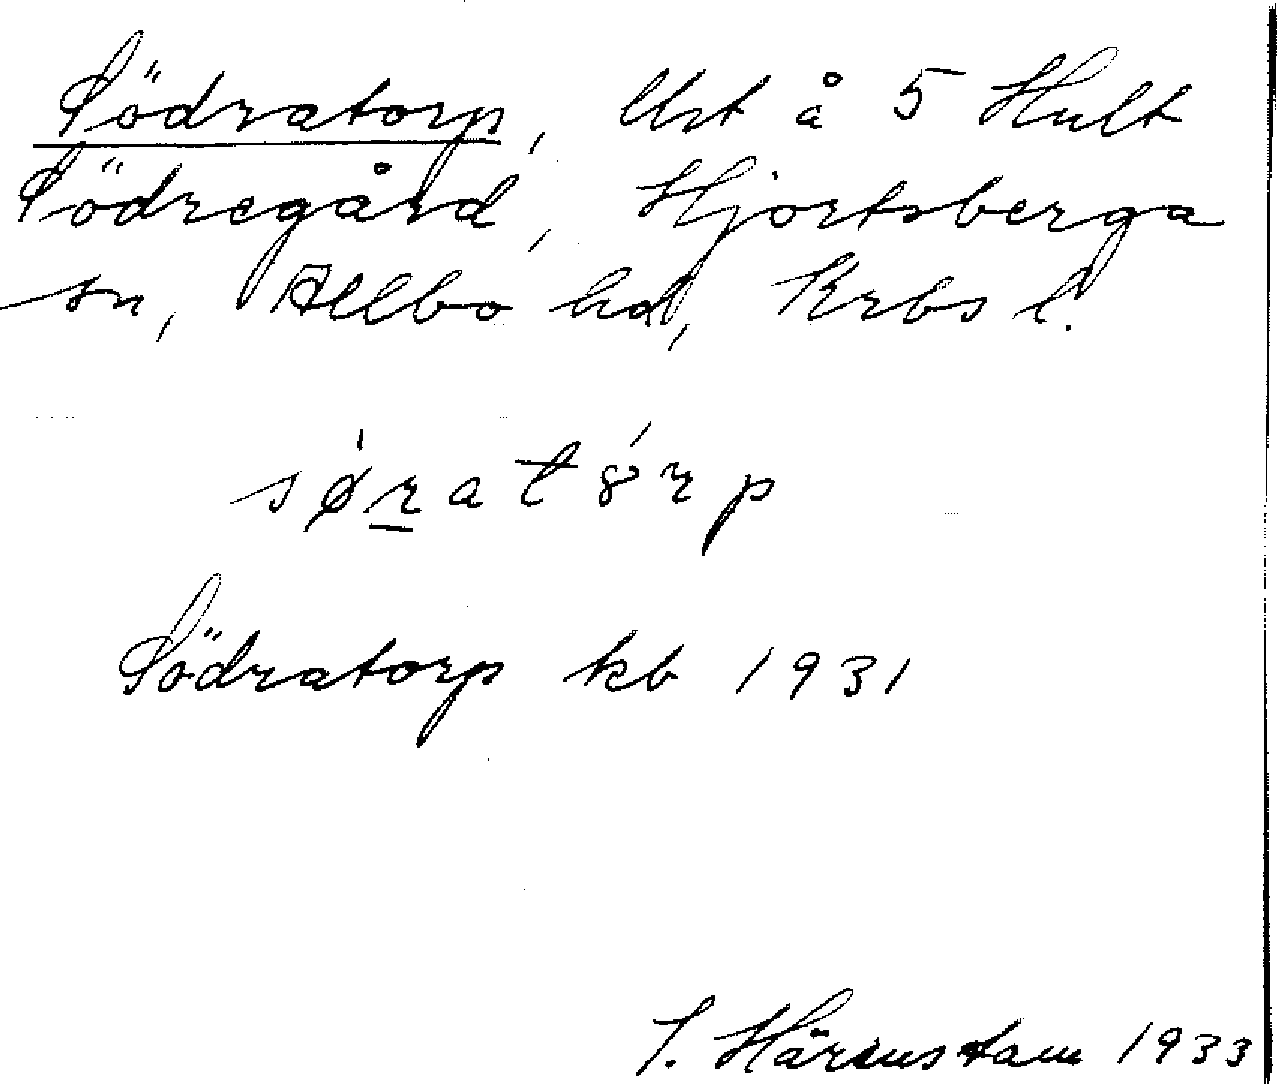 Södratorp, Ust å 5 Hult
Södregård, Hjortsberga
sn, Allbo hd, Krbs l.
søratȣrp
Södratorp kb 1931
Härenstam 1933